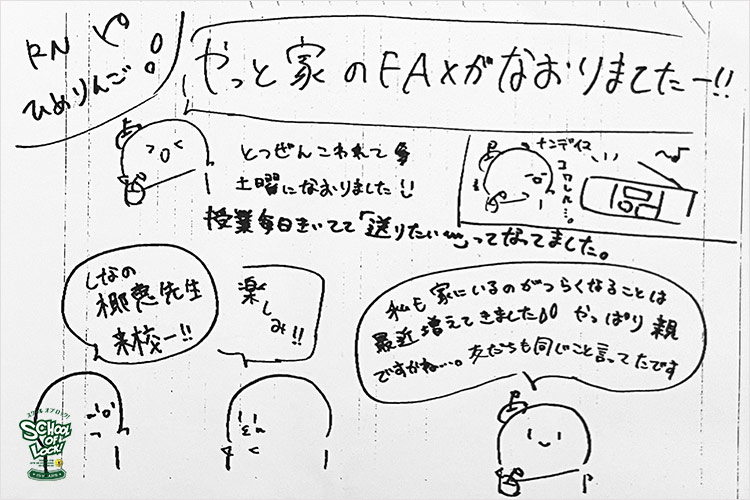 RN
ひめりんご
やっと家のFAXがなおりましたー!!
とつぜんこわれて
土曜になおりました
授業毎日きいてて「送りたい…」ってなってました。
ナンデイス
コワレル…。
しなの
椰恵先生
来校ー!!
楽しみ!!
私も家にいるのがつらくなることは
最近増えてきました やっぱり親
ですかね…。友だちも同じこと言ってたです
スクールオブロック!
SCHOOL OF LOCK!